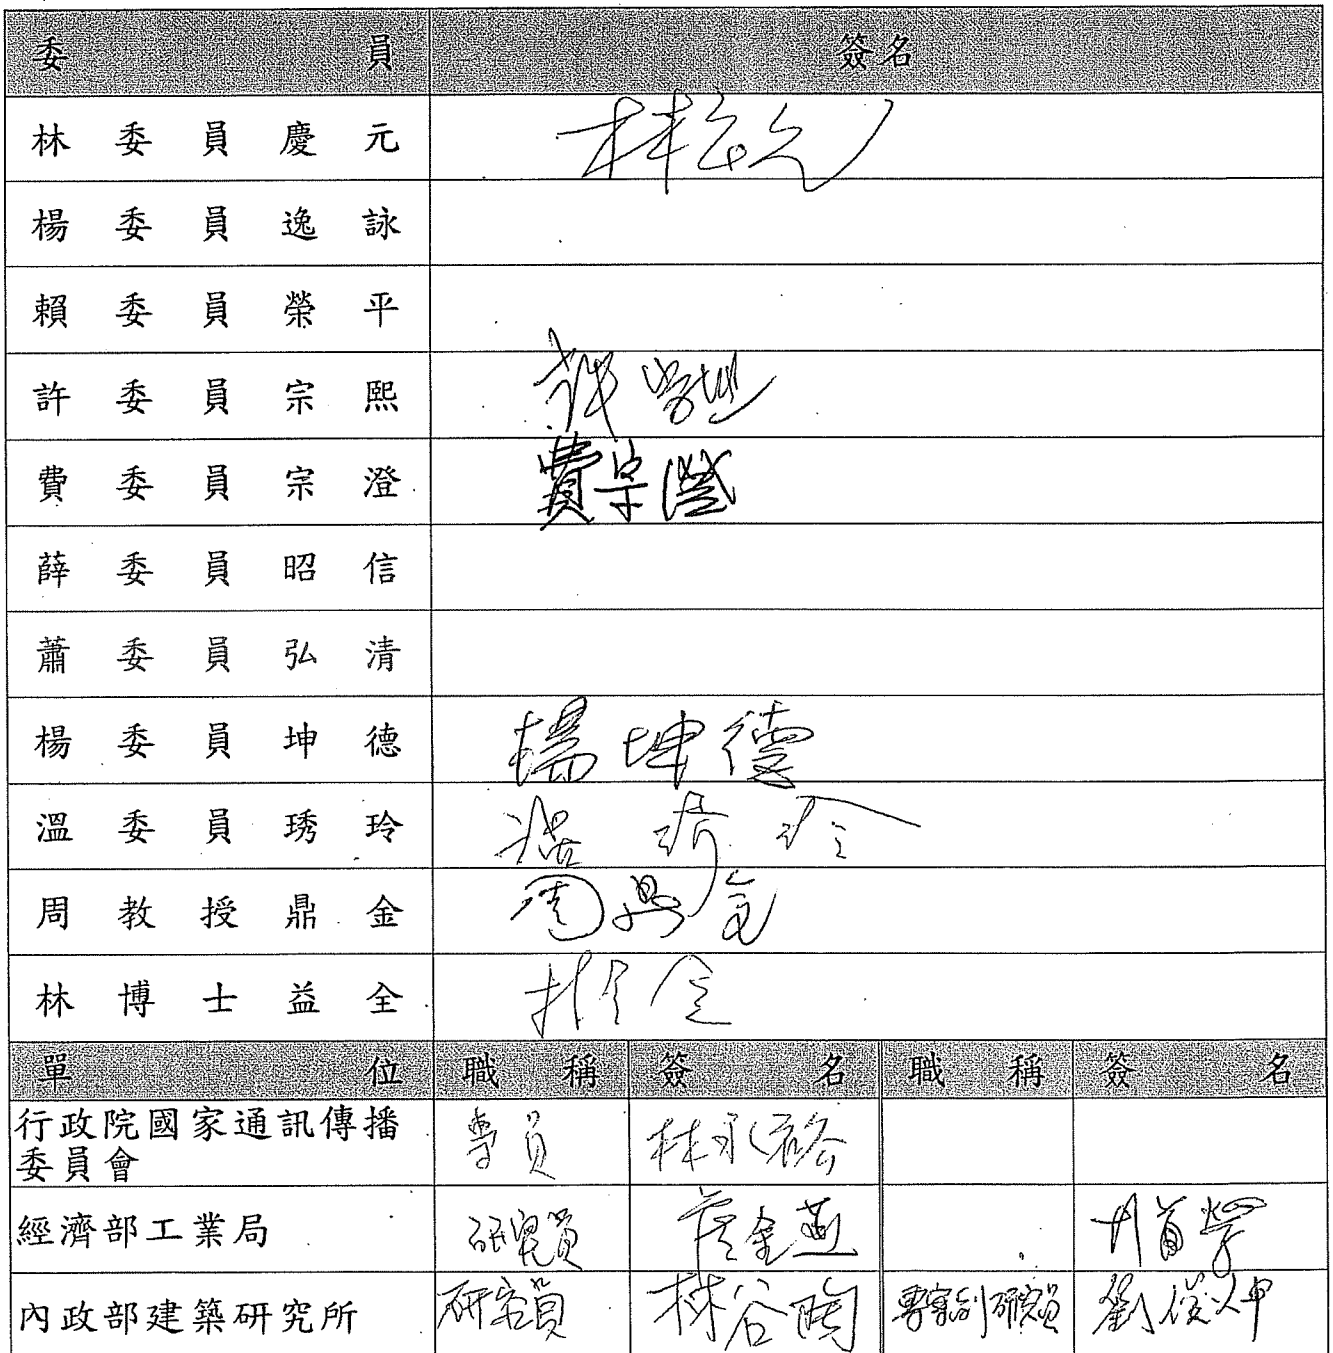 委員 簽名
林委員慶元 林慶元
楊委員逸詠
賴委員榮平
許委員宗熙 許宗熙
費委員宗澄 費宗澄
薛委員昭信
蕭委員弘清
楊委員坤德 楊坤德
溫委員琇玲 溫琇玲
周教授鼎金 周鼎金
林博士益全 林益全
單位 職稱 簽名 職稱 簽名
行政院國家通訊傳播
委員會 專員 林永裕
經濟部工業局 研究員
內政部建築研究所 研究員 林谷陶 專案副研究員 劉俊坤